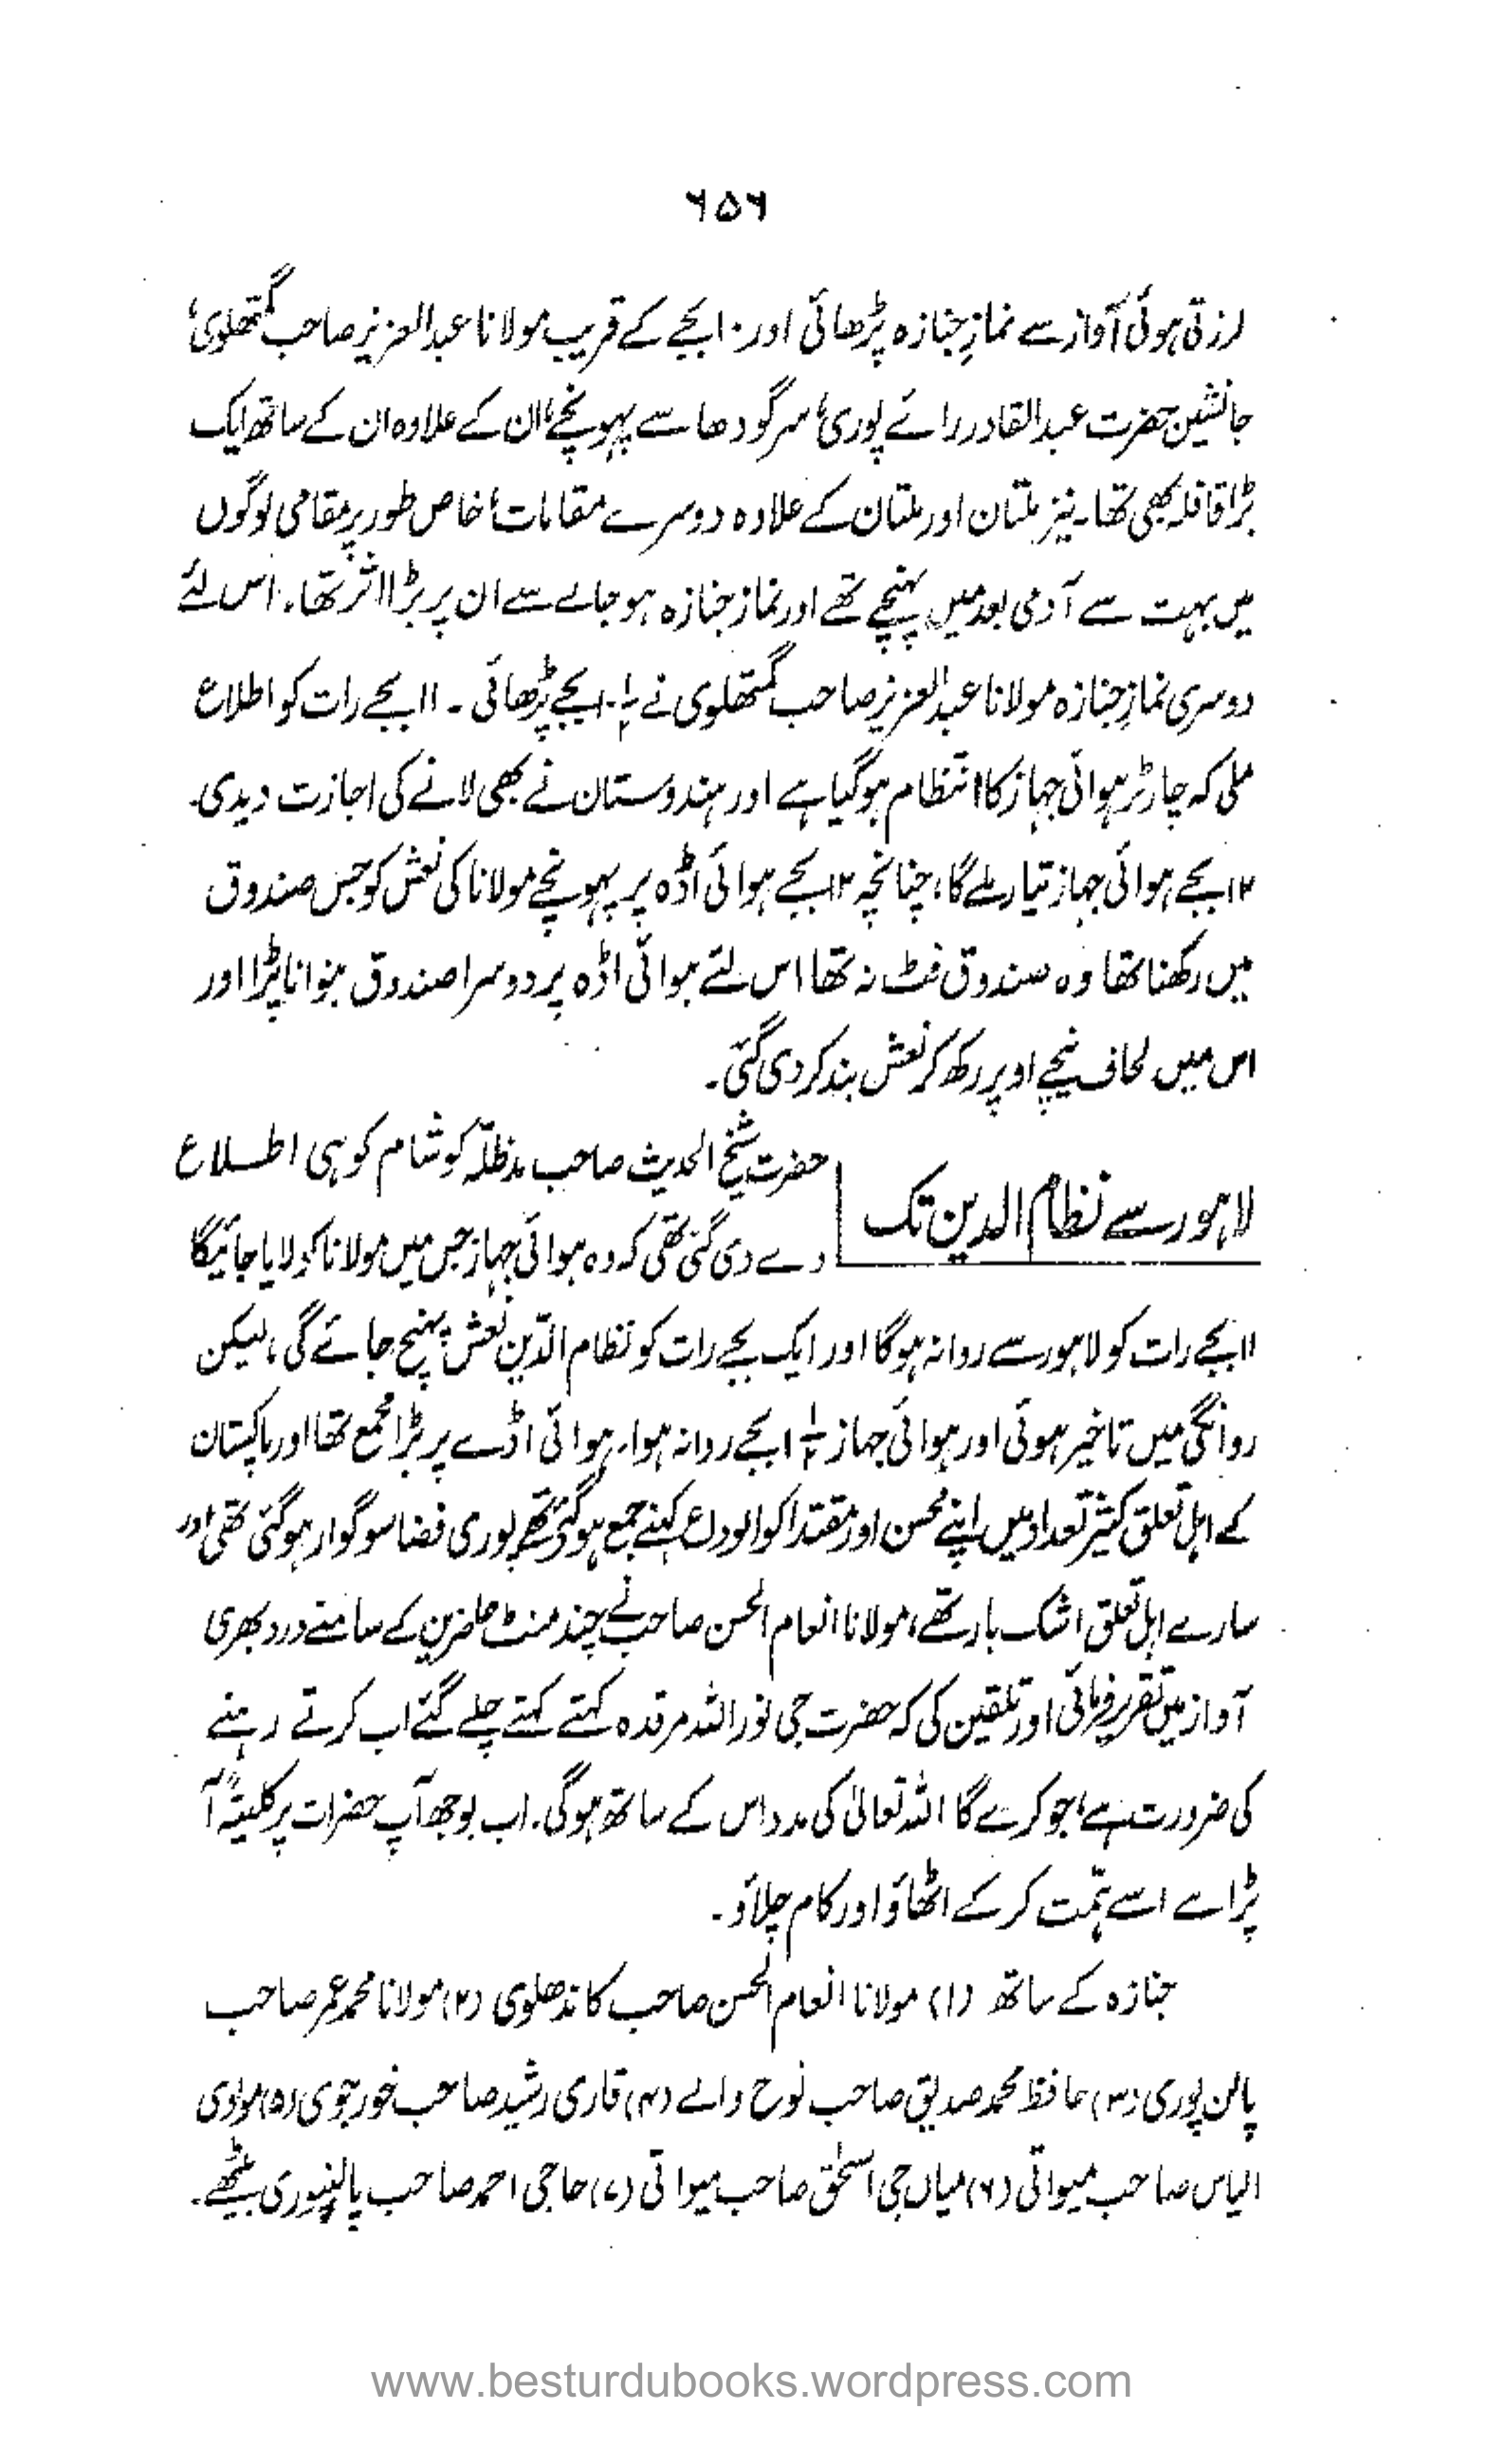 ۶۵۶
لرزتی ہوئی آواز سے نمازِ جنازہ پڑھائی اور ۱۰ بجے کے قریب مولانا عبدالعزیز صاحب گمتھلوی،
جانشین حضرت عبدالقادر رائے پوری، سرگودھا سے پہونچے، ان کے علاوہ ان کے ساتھ ایک
بڑا قافلہ بھی تھا۔ نیز ملتان اور ملتان کے علاوہ دوسرے مقامات، خاص طور پر مقامی لوگوں
میں بہت سے آدمی بعد میں پہنچے تھے اور نماز جنازہ ہو جانے سے ان پر بڑا اثر تھا۔ اس لئے
دوسری نمازِ جنازہ مولانا عبدالعزیز صاحب گمتھلوی نے ۱۰½ بجے پڑھائی۔ ۱۱ بجے رات کو اطلاع
ملی کہ چارٹر ہوائی جہاز کا انتظام ہوگیا ہے اور ہندوستان نے بھی لانے کی اجازت دیدی۔
۱۲ بجے ہوائی جہاز تیار ملے گا، چنانچہ ۱۲ بجے ہوائی اڈہ پر پہونچے مولانا کی نعش کو جس صندوق
میں رکھنا تھا وہ صندوق فٹ نہ تھا اس لئے ہوائی اڈہ پر دوسرا صندوق بنوانا پڑا اور
اس میں لحاف نیچے اوپر رکھ کر نعش بند کر دی گئی۔
لاہور سے نظام الدین تک
حضرت شیخ الحدیث صاحب مدظلہٗ کو شام کو ہی اطلاع
دے دی گئی تھی کہ وہ ہوائی جہاز جس میں مولانا کو لایا جائیگا
۱۱ بجے رات کو لاہور سے روانہ ہوگا اور ایک بجے رات کو نظام الدّین نعش پہنچ جائے گی، لیکن
روانگی میں تاخیر ہوئی اور ہوائی جہاز ۱½ بجے روانہ ہوا۔ ہوائی اڈے پر بڑا مجمع تھا اور پاکستان
کے اہل تعلق کثیر تعداد میں اپنے محسن اور مقتدا کو الوداع کہنے جمع ہو گئے تھے پوری فضا سوگوار ہو گئی تھی اور
سارے اہل تعلق اشک بار تھے، مولانا انعام الحسن صاحب نے چند منٹ حاضرین کے سامنے درد بھری
آواز میں تقریر فرمائی اور تلقین کی کہ حضرت جی نور اللہ مرقدہ کہتے کہتے چلے گئے اب کرتے رہنے
کی ضرورت ہے، جو کرے گا اللہ تعالیٰ کی مدد اس کے ساتھ ہوگی۔ اب بوجھ آپ حضرات پر کلیۃً آ
پڑا ہے اسے ہمّت کر کے اٹھاؤ اور کام چلاؤ۔
جنازہ کے ساتھ (۱) مولانا انعام الحسن صاحب کاندھلوی (۲) مولانا محمد عمر صاحب
پالن پوری (۳) حافظ محمد صدیق صاحب نوح والے (۴) قاری رشید صاحب خورجوی (۵) مولوی
الیاس صاحب میواتی (۶) میاں جی اسحٰق صاحب میواتی (۷) حاجی احمد صاحب پالنپوری بیٹھے۔
www.besturdubooks.wordpress.com